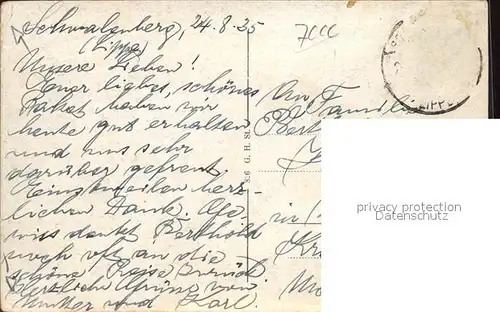 Schwalenberg, 24.8.35
(Lippe)
Unsere Lieben!
Euer liebes, schönes
Paket haben wir
heute gut erhalten
und uns sehr
darüber gefreut.
Einstweilen herz-
lichen Dank. Ge-
wiss denkt Berthold
noch oft an die
schöne Reise zurück.
Herzliche Grüsse von
Mutter und Karl.
An Familie
in
G. H. St.
LIPPE
privacy protection
Datenschutz